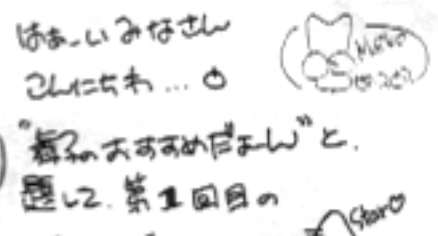 はぁーいみなさん
こんにちわ…
"舞子のおすすめだよーん"と、
題して、第1回目の
Start♡